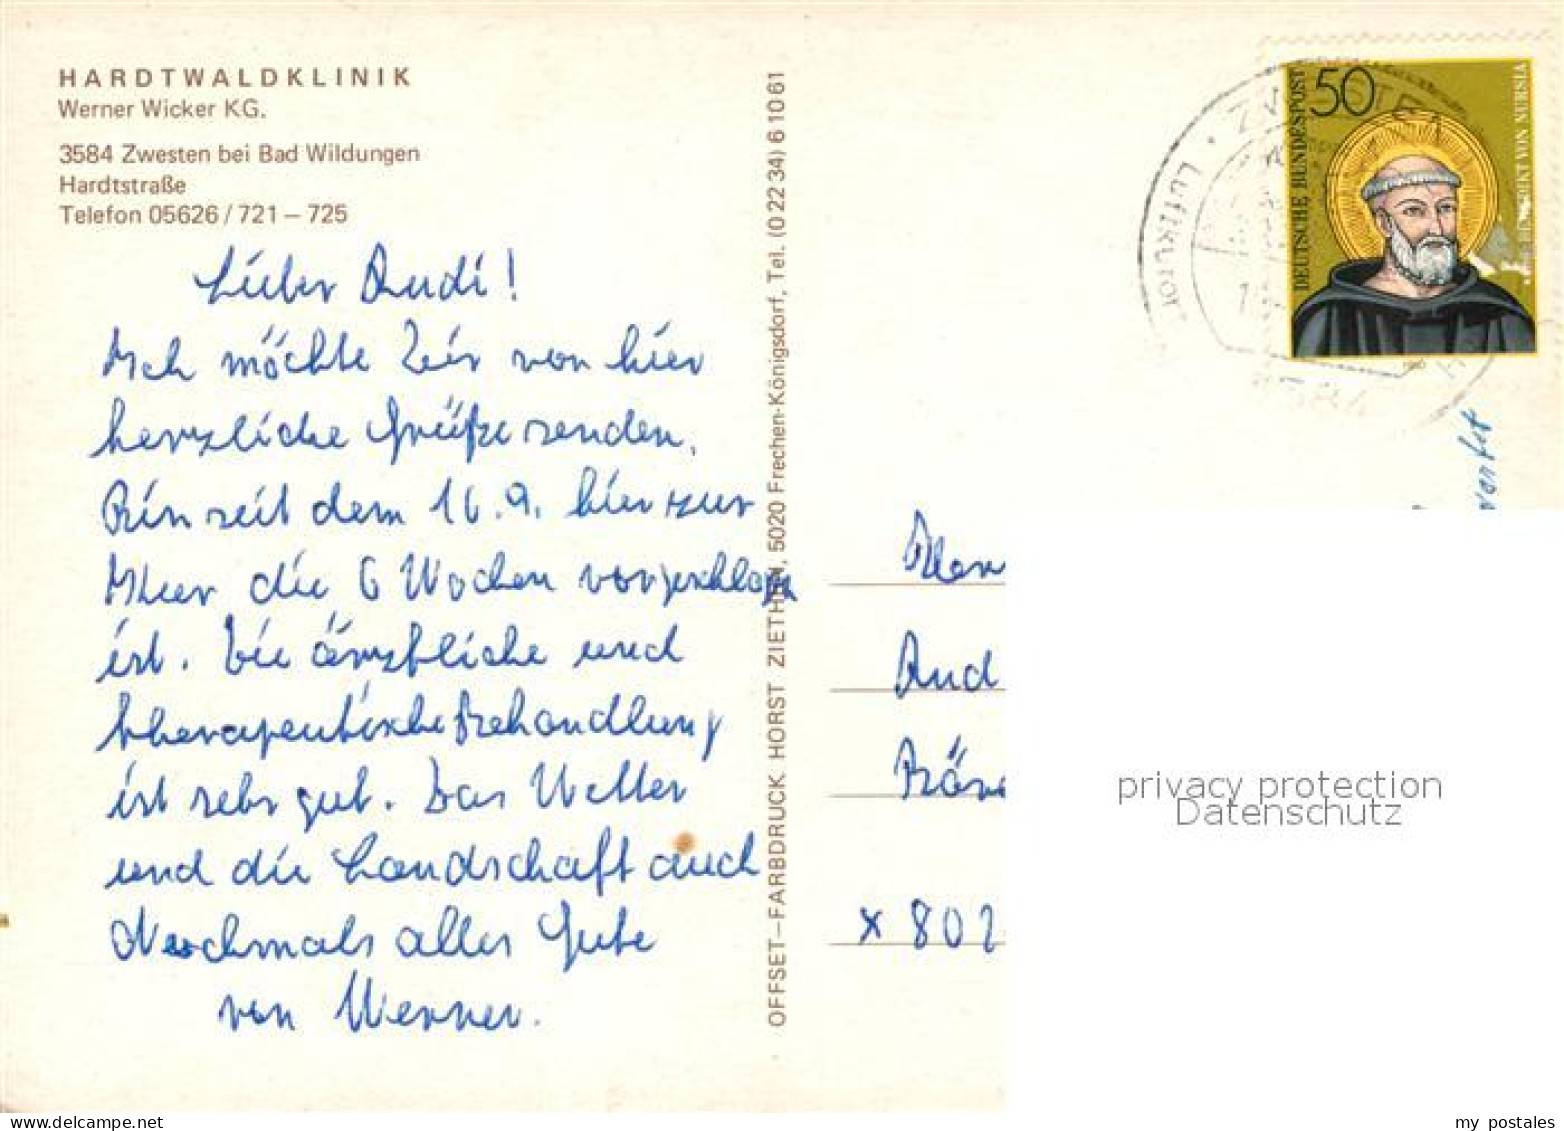 HARDTWALDKLINIK
Werner Wicker KG.
3584 Zwesten bei Bad Wildungen
Hardtstraße
Telefon 05626 / 721 – 725
Lieber Rudi!
Ich möchte Dir von hier
herzliche Grüße senden.
Bin seit dem 16.9. hier zur
die 6 Wochen vorgeschlagen
ist. Die ärztliche und
therapeutische Behandlung
ist sehr gut. Das Wetter
und die Landschaft auch
Nochmals alles Gute
von Werner.
OFFSET–FARBDRUCK HORST ZIETHEN, 5020 Frechen-Königsdorf, Tel. (0 22 34) 6 10 61
DEUTSCHE BUNDESPOST
50
BENEDIKT VON NURSIA
1980
ZWESTEN
Luftkurort
3584
Herr
Rud
802
privacy protection
Datenschutz
delcampe.net
my_postales